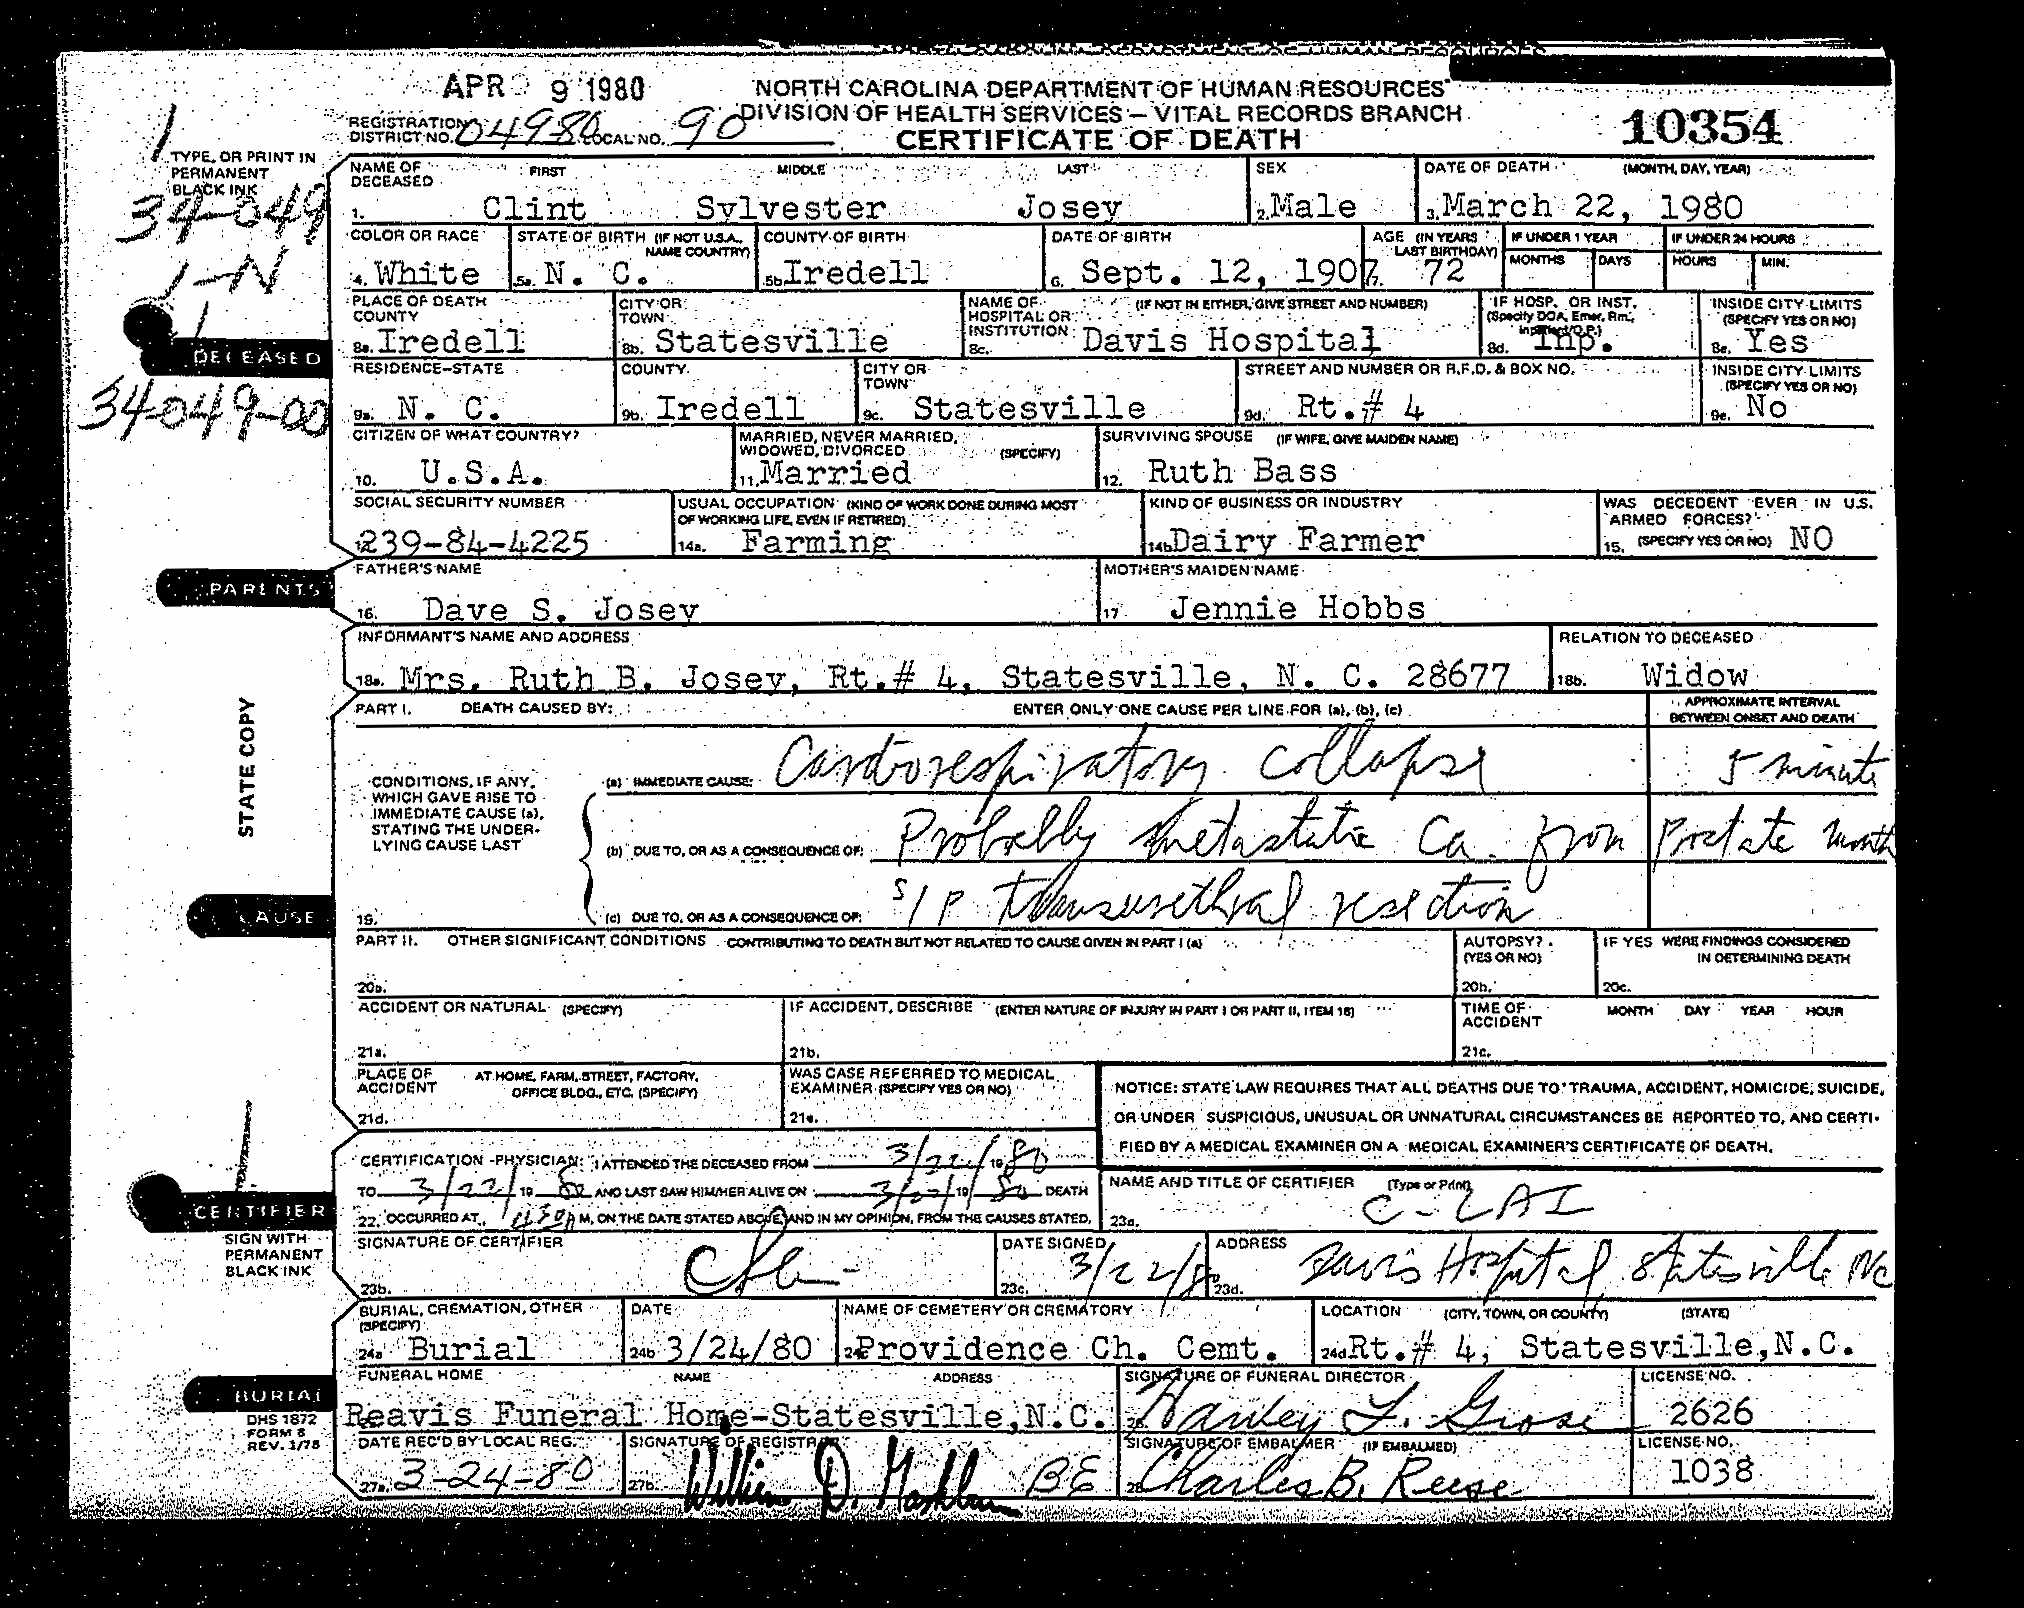 APR 9 1980
NORTH CAROLINA DEPARTMENT OF HUMAN RESOURCES
DIVISION OF HEALTH SERVICES — VITAL RECORDS BRANCH
CERTIFICATE OF DEATH
10354
REGISTRATION DISTRICT NO. 04980 LOCAL NO. 90
TYPE, OR PRINT IN
PERMANENT
BLACK INK
34-049
1-N
DECEASED
34-049-00
NAME OF DECEASED FIRST MIDDLE LAST SEX DATE OF DEATH (MONTH, DAY, YEAR)
1. Clint Sylvester Josey 2. Male 3. March 22, 1980
COLOR OR RACE STATE OF BIRTH (IF NOT U.S.A., NAME COUNTRY) COUNTY OF BIRTH DATE OF BIRTH AGE (IN YEARS LAST BIRTHDAY) IF UNDER 1 YEAR MONTHS DAYS IF UNDER 24 HOURS HOURS MIN.
4. White 5a. N. C. 5b. Iredell 6. Sept. 12, 1907 7. 72
PLACE OF DEATH COUNTY CITY OR TOWN NAME OF HOSPITAL OR INSTITUTION (IF NOT IN EITHER, GIVE STREET AND NUMBER) IF HOSP. OR INST. (Specify DOA, Emer. Rm., Inpatient/O.P.) INSIDE CITY LIMITS (SPECIFY YES OR NO)
8a. Iredell 8b. Statesville 8c. Davis Hospital 8d. Inp. 8e. Yes
RESIDENCE—STATE COUNTY CITY OR TOWN STREET AND NUMBER OR R.F.D. & BOX NO. INSIDE CITY LIMITS (SPECIFY YES OR NO)
9a. N. C. 9b. Iredell 9c. Statesville 9d. Rt.# 4 9e. No
CITIZEN OF WHAT COUNTRY? MARRIED, NEVER MARRIED, WIDOWED, DIVORCED (SPECIFY) SURVIVING SPOUSE (IF WIFE, GIVE MAIDEN NAME)
10. U.S.A. 11. Married 12. Ruth Bass
SOCIAL SECURITY NUMBER USUAL OCCUPATION (KIND OF WORK DONE DURING MOST OF WORKING LIFE, EVEN IF RETIRED) KIND OF BUSINESS OR INDUSTRY WAS DECEDENT EVER IN U.S. ARMED FORCES?
239-84-4225 14a. Farming 14b. Dairy Farmer 15. (SPECIFY YES OR NO) NO
PARENTS
FATHER'S NAME MOTHER'S MAIDEN NAME
16. Dave S. Josey 17. Jennie Hobbs
INFORMANT'S NAME AND ADDRESS RELATION TO DECEASED
18a. Mrs. Ruth B. Josey, Rt.# 4, Statesville, N. C. 28677 18b. Widow
STATE COPY
PART I. DEATH CAUSED BY: ENTER ONLY ONE CAUSE PER LINE FOR (a), (b), (c) APPROXIMATE INTERVAL BETWEEN ONSET AND DEATH
CONDITIONS, IF ANY,
WHICH GAVE RISE TO
IMMEDIATE CAUSE (a),
STATING THE UNDER-
LYING CAUSE LAST
(a) IMMEDIATE CAUSE: Cardiorespiratory collapse 5 minute
(b) DUE TO, OR AS A CONSEQUENCE OF: Probally metastatic Ca. from Prostate month
CAUSE
19. (c) DUE TO, OR AS A CONSEQUENCE OF: S/P transurethral resection
PART II. OTHER SIGNIFICANT CONDITIONS CONTRIBUTING TO DEATH BUT NOT RELATED TO CAUSE GIVEN IN PART I (a) AUTOPSY? (YES OR NO) IF YES WERE FINDINGS CONSIDERED IN DETERMINING DEATH
20b. 20c.
ACCIDENT OR NATURAL (SPECIFY) IF ACCIDENT, DESCRIBE (ENTER NATURE OF INJURY IN PART I OR PART II, ITEM 18) TIME OF ACCIDENT MONTH DAY YEAR HOUR
21a. 21b. 21c.
PLACE OF ACCIDENT AT HOME, FARM, STREET, FACTORY, OFFICE BLDG., ETC. (SPECIFY) WAS CASE REFERRED TO MEDICAL EXAMINER (SPECIFY YES OR NO)
21d. 21e.
NOTICE: STATE LAW REQUIRES THAT ALL DEATHS DUE TO TRAUMA, ACCIDENT, HOMICIDE, SUICIDE,
OR UNDER SUSPICIOUS, UNUSUAL OR UNNATURAL CIRCUMSTANCES BE REPORTED TO, AND CERTI-
FIED BY A MEDICAL EXAMINER ON A MEDICAL EXAMINER'S CERTIFICATE OF DEATH.
CERTIFICATION - PHYSICIAN: I ATTENDED THE DECEASED FROM 3/22/1980
TO 3/22/1980 AND LAST SAW HIM/HER ALIVE ON 3/22/1980 DEATH
22. OCCURRED AT M, ON THE DATE STATED ABOVE, AND IN MY OPINION, FROM THE CAUSES STATED.
NAME AND TITLE OF CERTIFIER (Type or Print)
23a. C-LAI
CERTIFIER
SIGN WITH
PERMANENT
BLACK INK
SIGNATURE OF CERTIFIER DATE SIGNED ADDRESS
23b. 23c. 3/22/80 23d. Davis Hospital Statesville NC
BURIAL, CREMATION, OTHER (SPECIFY) DATE NAME OF CEMETERY OR CREMATORY LOCATION (CITY, TOWN, OR COUNTY) (STATE)
24a Burial 24b 3/24/80 24c Providence Ch. Cemt. 24d Rt.# 4, Statesville,N.C.
BURIAL
DHS 1872
FORM 8
REV. 1/78
FUNERAL HOME NAME ADDRESS SIGNATURE OF FUNERAL DIRECTOR LICENSE NO.
Reavis Funeral Home-Statesville,N.C. 2626
DATE REC'D BY LOCAL REG. SIGNATURE OF REGISTRAR SIGNATURE OF EMBALMER (IF EMBALMED) LICENSE NO.
27a. 3-24-80 27b. William D. BE Charles B. Reese 1038